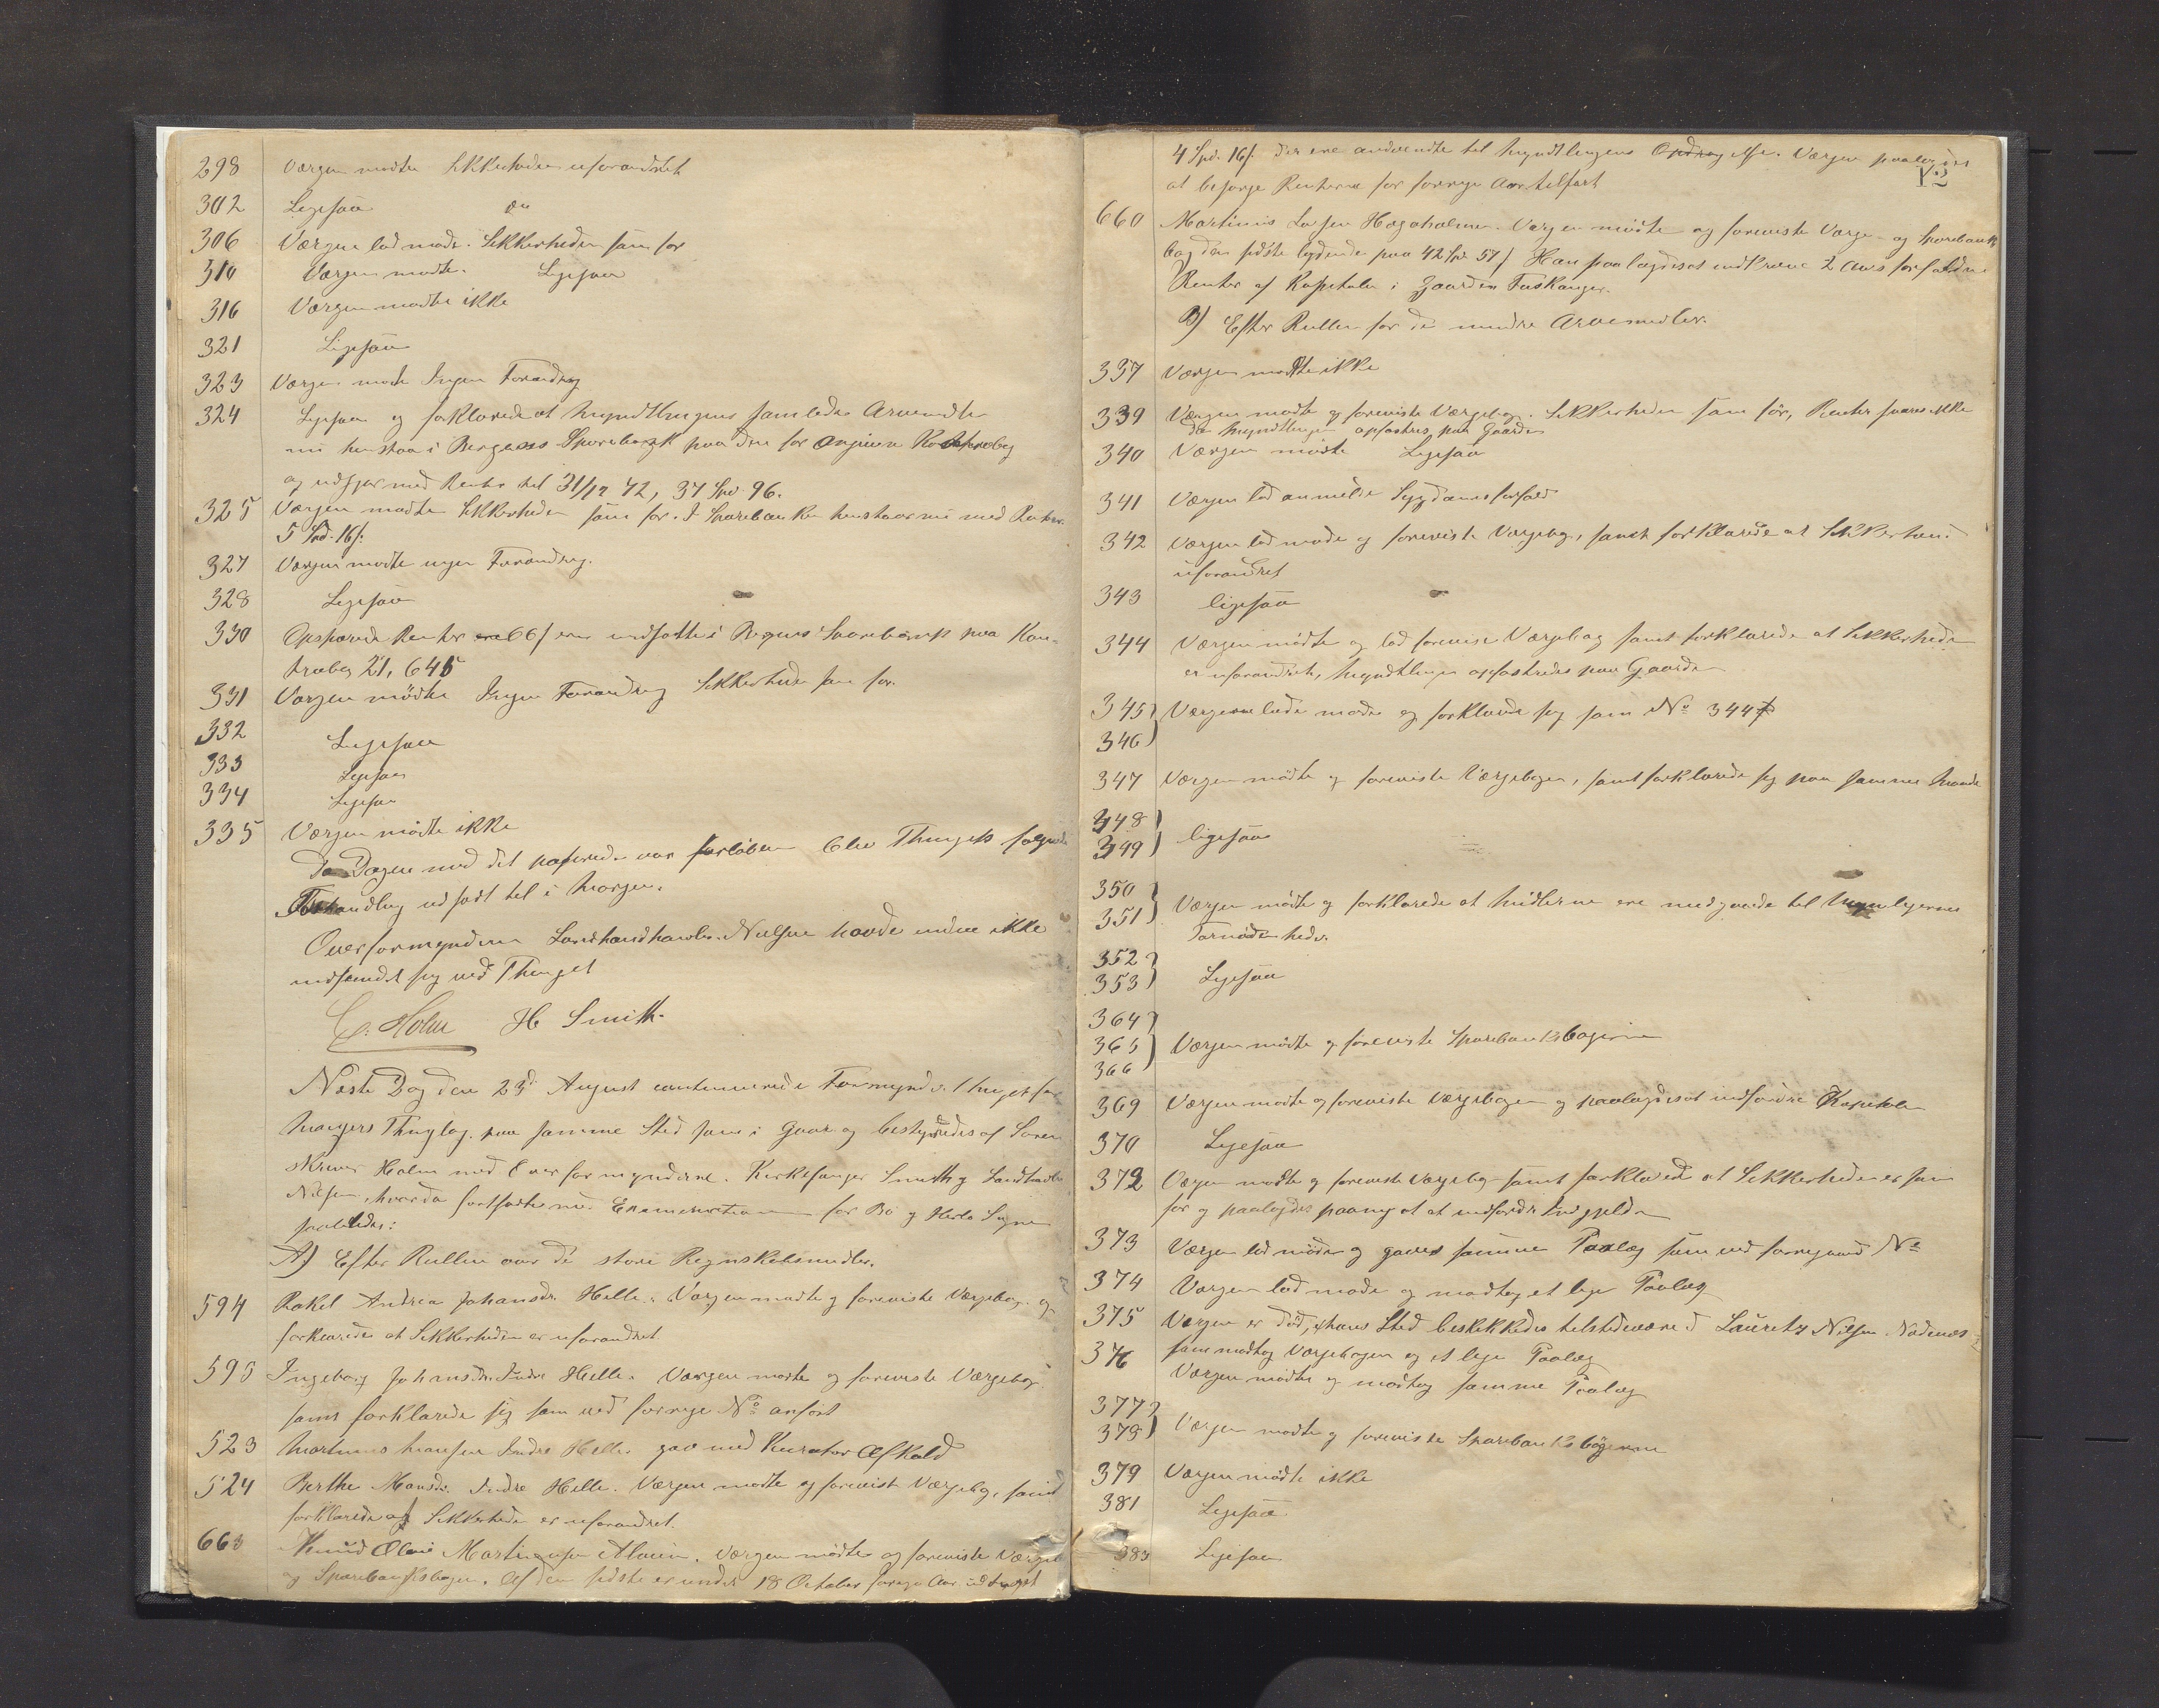 298 Værgen mødte Sikkerheden uforandret
302 Ligesaa do
306 Værgen lod møde. Sikkerheden som før
310 Værgen mødte. Ligesaa
316 Værgen mødte ikke
321 Ligesaa
323 Værgen mødte Ingen Forandring
324 Ligesaa og forklarede at Myndtlingens samlede Arvemidler
nu henstaa i Bergens Sparebank paa den før angivne Kontrabog
og udgjør med Renter til 31/12 72, 37 Spd. 96.
325 Værgen mødte Sikkerheden som før. I Sparebanken henstaar nu med Renter
5 Spd. 16 s:
327 Værgen mødte ingen Forandring.
328 Ligesaa
330 Opsparede Renter 66 s ere indsatte i Bergens Sparebank paa Kon-
trabog 21, 645
331 Værgen mødte Ingen Forandring Sikkerheden som før.
332 Ligesaa
333 Ligesaa
334 Ligesaa
335 Værgen mødte ikke
Da Dagen med det passerede var forløben blev Thingets
Forhandling udsat til i Morgen.
Overformynderen Landhandler Nielsen havde endnu ikke
indfundet sig ved Thinget
C. Holm H Smith.
Næste Dag den 23d August continuerede Formynderthinget for
Mangers Thinglag paa samme Sted som i Gaar og bestyredes af Soren-
skriver Holm med Overformynderne Kirkesanger Smith og Landhandler
Nielsen, hvorda fortsattes med Examinationen for Bø og Herlø Sogne
saaledes:
A) Efter Rullen over de store Regnskabsmidler.
594 Rakel Andrea Johansdr. Helle. Værgen mødte og foreviste Værgebog og
forklarede at Sikkerheden er uforandret
595 Ingeborg Johansdr. Indre Helle. Værgen mødte og foreviste Værgebog
samt forklarede sig som ved forrige No anført
523 Martinus Monsen Indre Helle gav med Kurator Afkald
524 Berthe Monsdr. Indre Helle. Værgen mødte og foreviste Værgebog, samt
forklarede at Sikkerheden er uforandret.
663 Knud Olai Martinusen. Værgen mødte og foreviste Værge-
og Sparebanksbogen. Af den sidste er under 18 October forrige Aar udtaget
12
4 Spd. 16 s. der ere anvendte til Myndtlingens Opdragelse. Værgen paalagdes
at besørge Renterne for forrige Aar tilført
660 Martinus Larsen Hagoholmen. Værgen mødte og foreviste Værge- og Sparebank-
bog den sidste lydende paa 42 Spd 57 s Han paalagdes at indkræve 2 Aars forfaldne
Renter af Kapitalen i Gaarden Fuskanger.
B) Efter Rullen for de mindre Arvemidler.
337 Værgen mødte ikke
339 Værgen mødte og foreviste Værgebogen. Sikkerheden som før, Renter svares ikke
da Myndtlingen opfostres paa Gaarden
340 Værgen mødte Ligesaa
341 Værgen lod anmelde Sygdomsforfald
342 Værgen lod møde og foreviste Værgebog, samt forklarede at Sikkerheden
uforandret
343 ligesaa
344 Værgen mødte og lod forevise Værgebog samt forklarede at Sikkerheden
er uforandret, Myndtlingen opfostredes paa Gaarden
345) Værgerne lode møde og forklarede sig som No 344
346)
347 Værgen mødte og foreviste Værgebogen, samt forklarede sig paa samme Maade
348)
349) ligesaa
350)
351) Værgen mødte og forklarede at Midlerne ere medgaaede til Myndlingernes
Fornødenheder.
352)
353) Ligesaa
364)
365) Værgen mødte og foreviste Sparebanksbøgerne
366
369 Værgen mødte og foreviste Værgebogen og paalagdes at indfordre Kapitalen
370 Ligesaa
372 Værgen mødte og foreviste Værgebog samt forklarede at Sikkerheden er som
før og paalagdes paany at indfordre
373 Værgen lod møde og gaves samme Paalæg som ved foregaaende No
374 Værgen lod møde og modtog et lige Paalæg
375 Værgen er død, i hans Sted beskikkedes tilstedeværende Lauritz Nilsen
som modtog Værgebogen og et lige Paalæg
376 Værgen mødte og modtog samme Paalæg
377)
378) Værgen mødte og foreviste Sparebanksbøgerne
379 Værgen mødte ikke
381 Ligesaa
383 Ligesaa